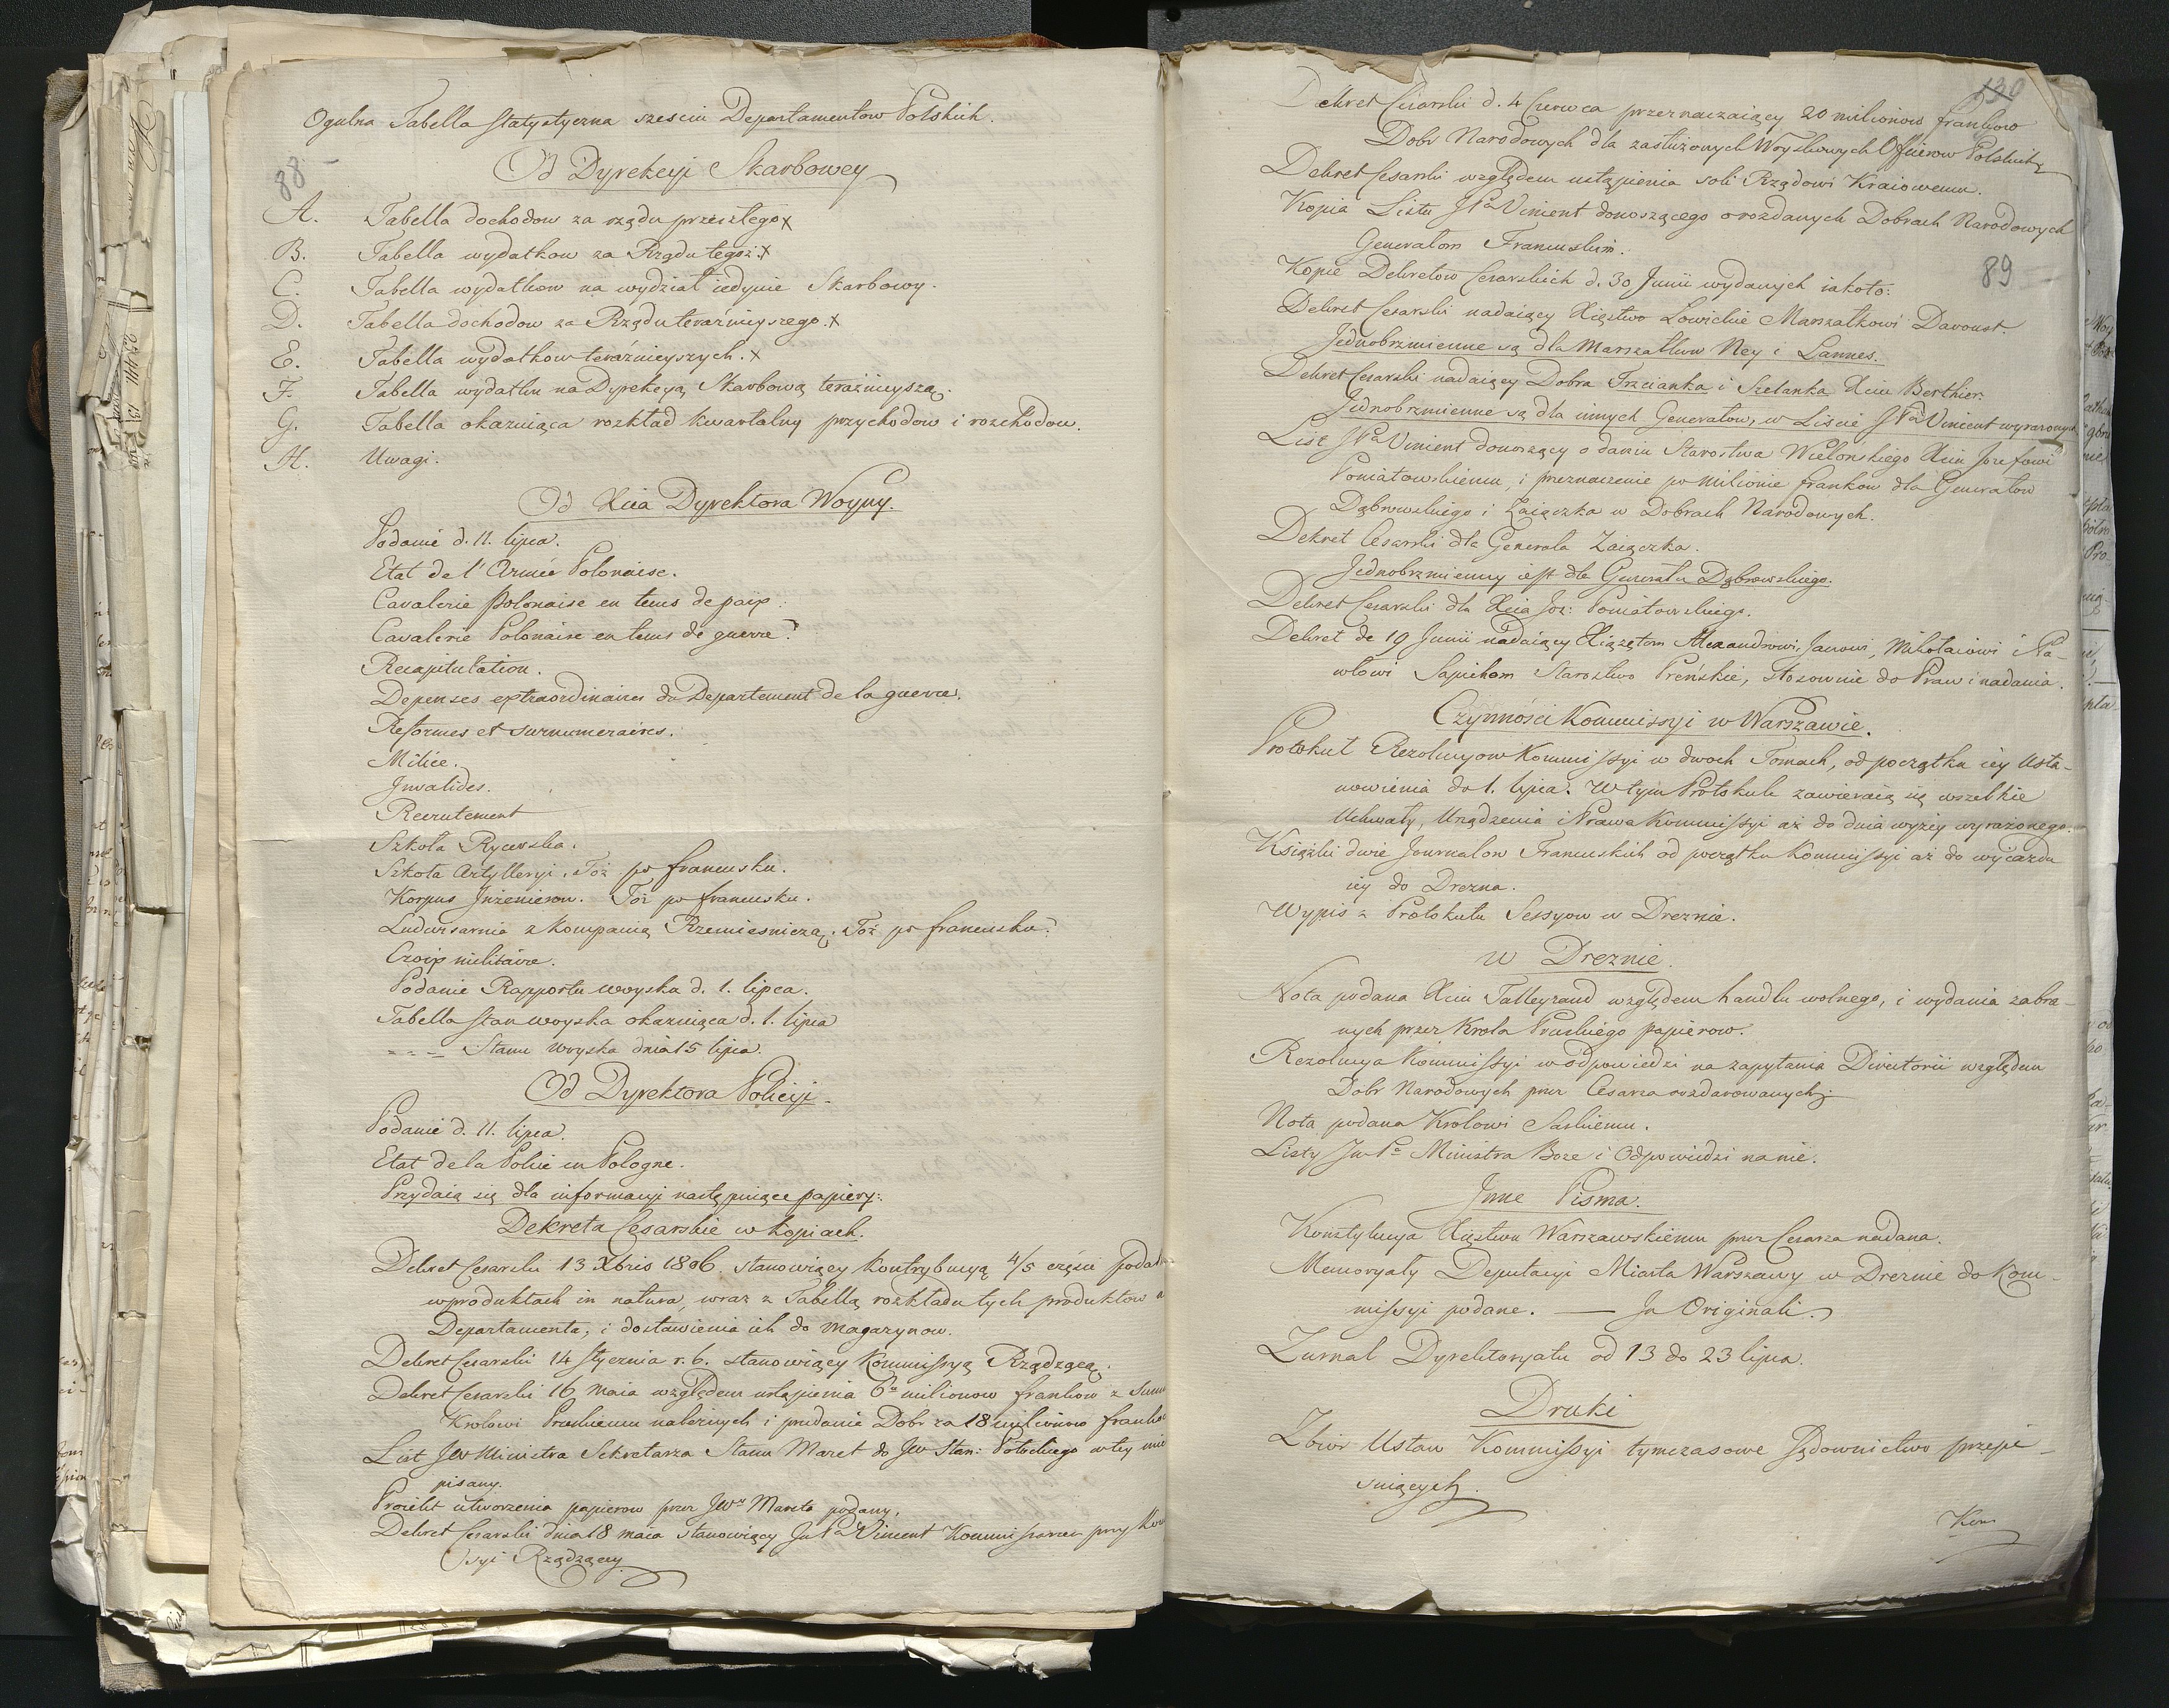 Ogulna Tabella statystyczna szesciu Departamentow Polskich.
88
Od Dyrekcyi Skarbowey
A. Tabella dochodow za rządu przeszłego x
B. Tabella wydatkow za Rządu tegoż. x
C. Tabella wydatkow na wydział iedynie Skarbowy.
D. Tabella dochodow za Rządu teraźnieyszego. x
E. Tabella wydatkow teraźnieyszych. x
F. Tabella wydatku na Dyrekcyą Skarbową teraźnieyszą.
G. Tabella okazuiąca rozkład kwartalny przychodow i rozchodow.
H. Uwagi.
Od Xcia Dyrektora Woyny.
Podanie d. 11. lipca.
Etat de l'Armée Polonaise.
Cavalerie Polonaise en tems de paix.
Cavalerie Polonaise en tems de guerre.
Recapitulation.
Dépenses extraordinaires du Departement de la guerre.
Reformes et surnumeraires.
Milice.
Invalides.
Recrutement
Szkoła Rycerska.
Szkoła Artylleryi. Toż po francusku.
Korpus Inżenierow. Toż po francusku.
Ludwisarnia z Kompanią Rzemiesniczą. Toż po francusku.
Croix militaire.
Podanie Rapportu woyska d. 1. lipca.
Tabella stan woyska okazuiąca d. 1. lipca
- - - - Stanu Woyska dnia 15 lipca.
Od Dyrektora Policyi.
Podanie d. 11. lipca.
Etat de la Police en Pologne.
Przydaią się dla informacyi następuiące papiery:
Dekreta Cesarskie w kopiach.
Dekret Cesarski 13 Xbris 1806. stanowiący Kontrybucyą 4/5 części
w produktach in natura, wraz z Tabellą rozkładu tych produktow
Departamenta, i dostawienia ich do magazynow.
Dekret Cesarski 14 Stycznia r. b. stanowiący Kommissyą Rządzącą.
Dekret Cesarski 16 maia względem ustąpienia 6 milionow frankow z
Krolowi Pruskiemu należnych i przedanie Dobr za 18 milionow
List JW Ministra Sekretarza Stanu Maret do JW Stan: Potockiego w tey
pisany.
Proiekt utworzenia papierow przez JWo Mareta podany.
Dekret Cesarski dnia 18 maia stanowiący JnPa Vincent Kommissarzem przy
syi Rządzącey
130
Dekret Cesarski d. 4 Czerwca przeznaczaiący 20 milionow frankow
Dobr Narodowych dla zasłużonych Woyskowych Officerow Polskich
Dekret Cesarski względem ustąpienia soli Rządowi Kraiowemu.
Kopia Listu JPa Vincent donoszącego o rozdanych Dobrach Narodowych
Generałom Francuskim.
89
Kopie Dekretow Cesarskich d. 30 Junii wydanych iakoto:
Dekret Cesarski nadaiący Xięstwo Lowickie Marszałkowi Davoust.
Jednobrzmienne są dla Marszałkow Ney i Lannes.
Dekret Cesarski nadaiący Dobra Trzcianka i Szelanka Xciu Berthier.
Jednobrzmienne są dla innych Generałow, w Liscie JPa Vincent wyrażonych
List JPa Vincent donoszący o daniu Starostwa Wielońskiego Xciu Jozefowi
Poniatowskiemu, i przeznaczenie po milionie frankow dla Generałow
Dąbrowskiego i Zaiączka w Dobrach Narodowych.
Dekret Cesarski dla Generała Zaiączka.
Jednobrzmienny iest dla Generała Dąbrowskiego.
Dekret Cesarski dla Xcia Joz: Poniatowskiego.
Dekret de 19 Junii nadaiący Xiążętom Alexandrowi, Janowi, Mikołaiowi i Pa-
włowi Sapiehom Starostwo Preńskie, stosownie do Praw i nadania.
Czynności Kommissyi w Warszawie.
Protokuł Rezolucyow Kommissyi w dwoch Tomach, od początku iey Usta-
nowienia do 1. lipca. W tym Protokule zawieraią się wszelkie
Uchwały, Urządzenia i Prawa Kommissyi aż do dnia wyżey wyrażonego.
Książki dwie Journalow Francuskich od początku Kommissyi aż do wyiazdu
iey do Drezna.
Wypis z Protokułu Sessyow w Dreznie.
w Dreznie.
Nota podana Xciu Talleyrand względem handlu wolnego, i wydania zabra-
nych przez Krola Pruskiego papierow.
Rezolucya Kommissyi w odpowiedzi na zapytania Directorii względem
Dobr Narodowych przez Cesarza rozdarowanych.
Nota podana Krolowi Saskiemu.
Listy Ministra Boze i Odpowiedzi na nie.
Inne Pisma.
Konstytucya Xięstwu Warszawskiemu przez Cesarza nadana.
Memoryały Deputacyi Miasta Warszawy w Dreznie do Kom-
missyi podane. — In Originali.
Zurnal Dyrektoryatu od 13 do 23 lipca.
Druki
Zbior Ustaw Kommissyi tymczasowe Sądownictwo przepi-
suiących.
Kom